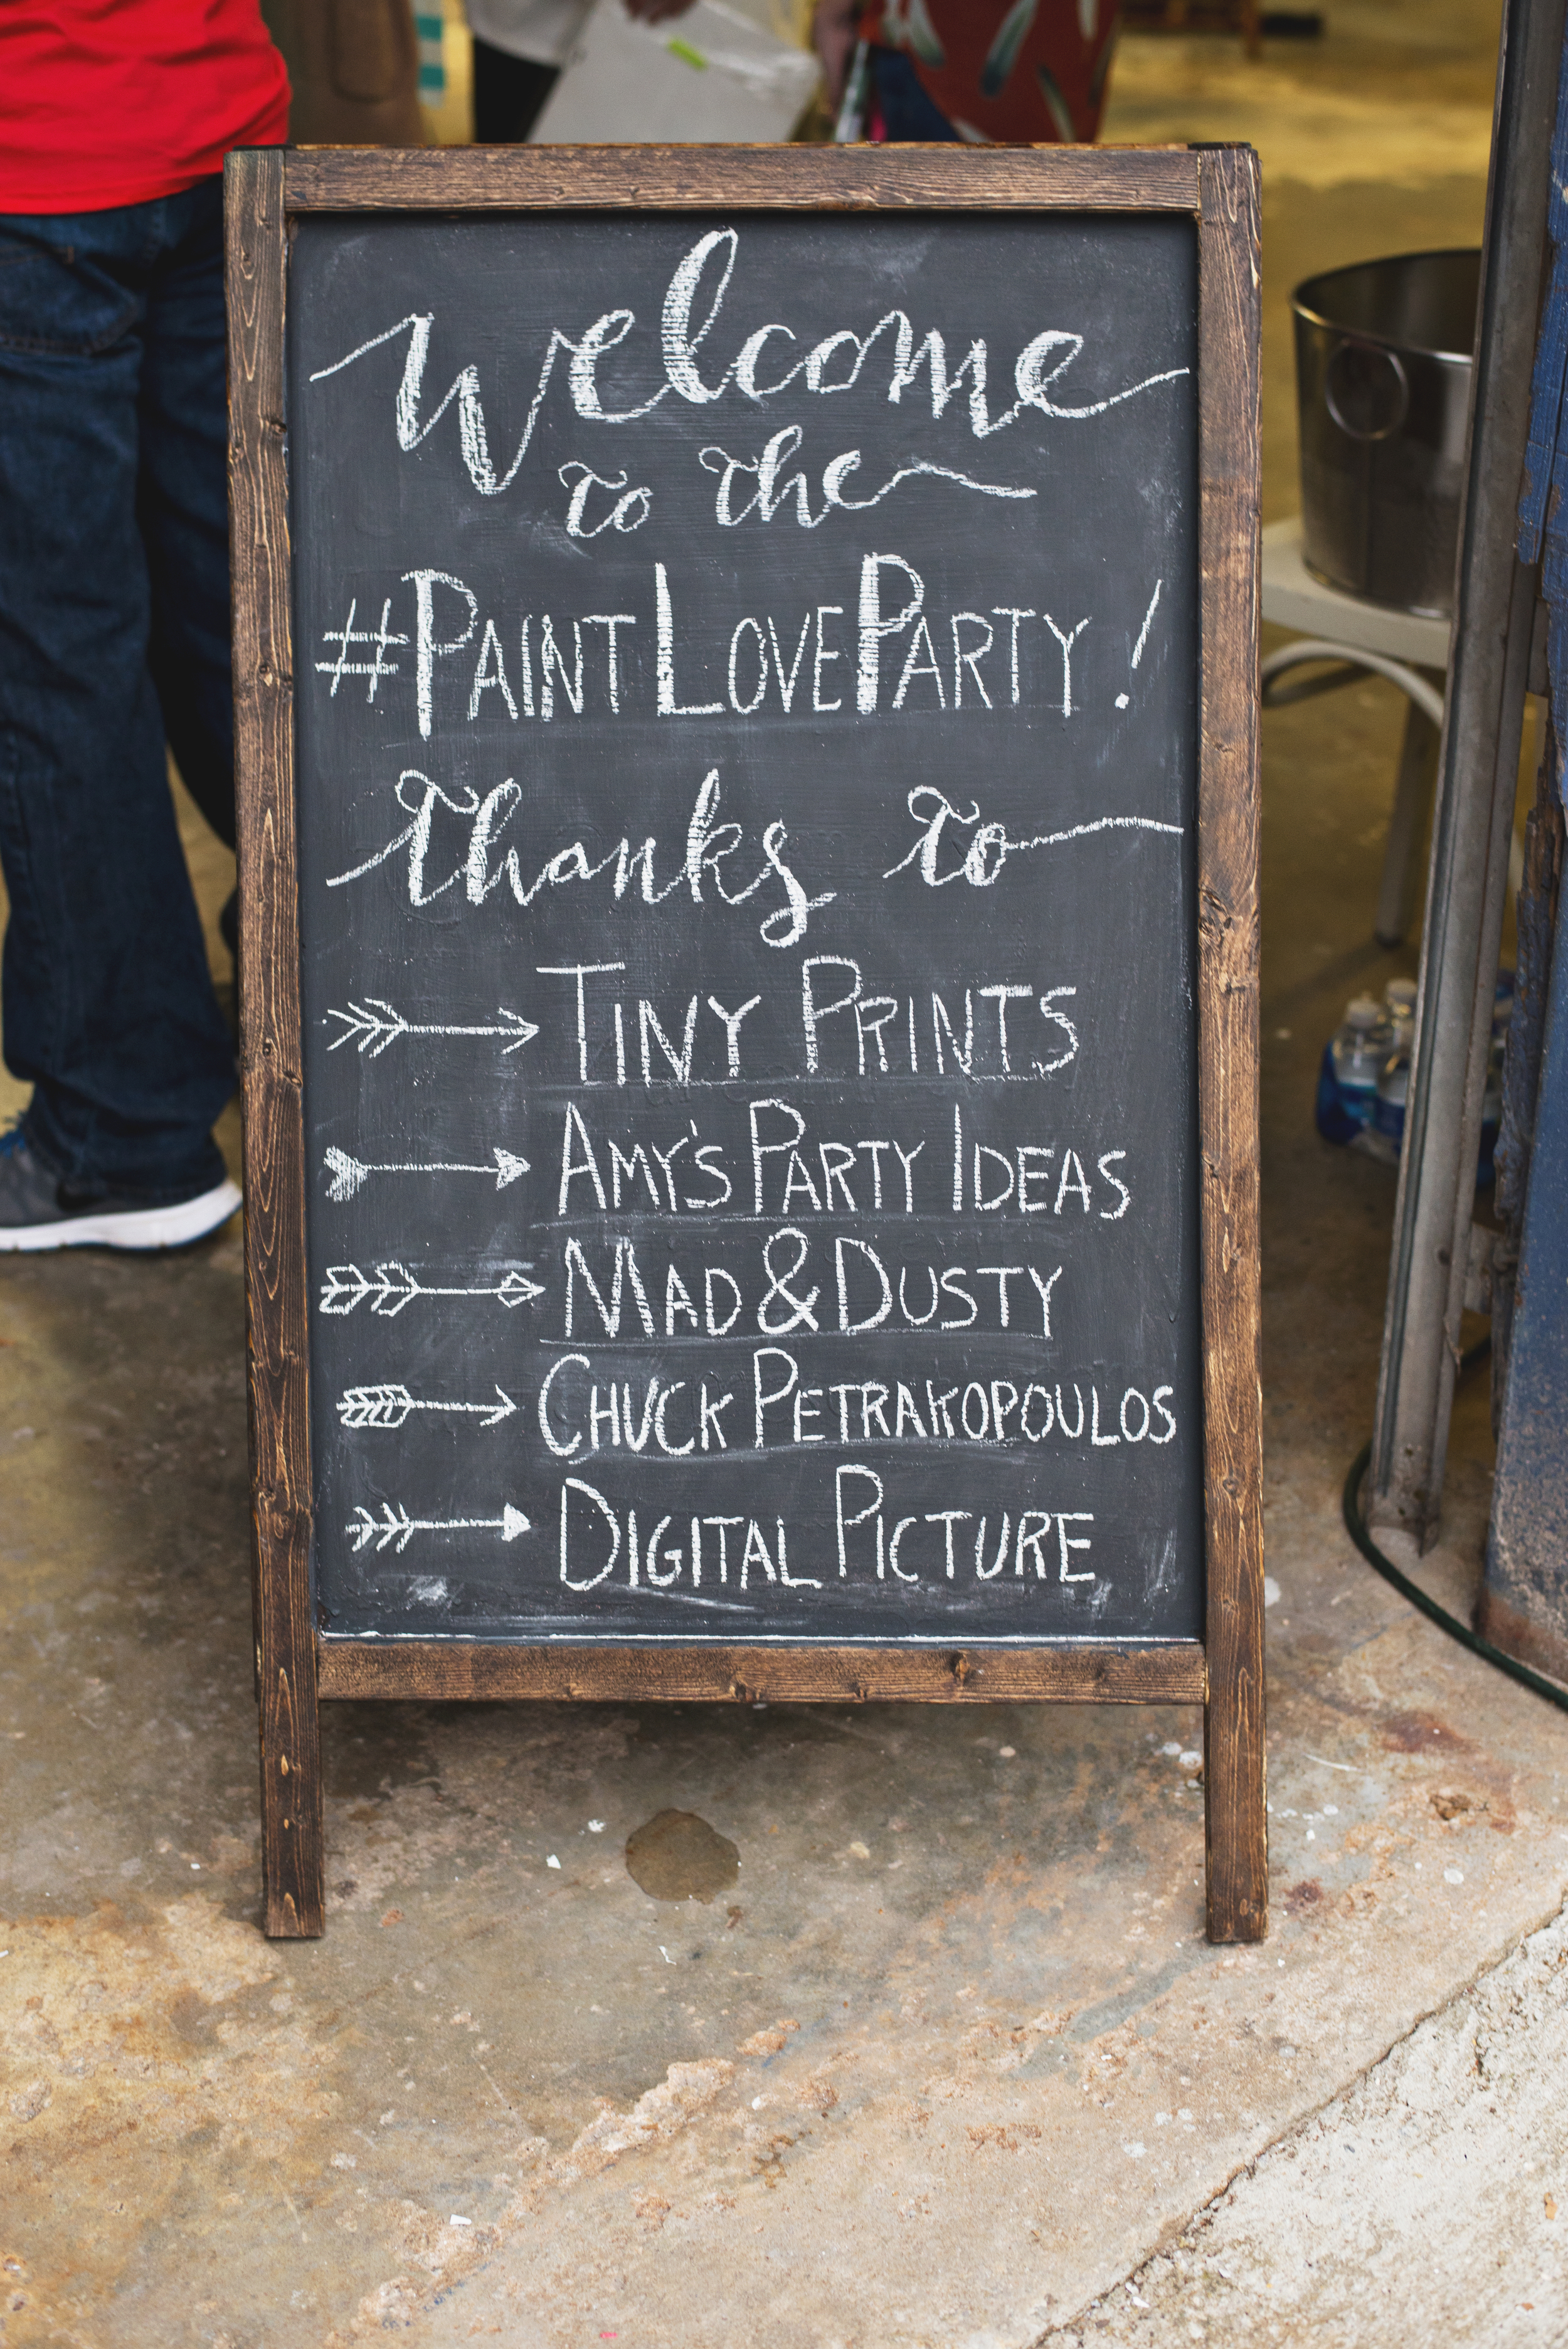 Welcome
to the
#PAINTLOVEPARTY!
Thanks to
TINY PRINTS
AMY'S PARTY IDEAS
MAD & DUSTY
CHUCK PETRAKOPOULOS
DIGITAL PICTURE